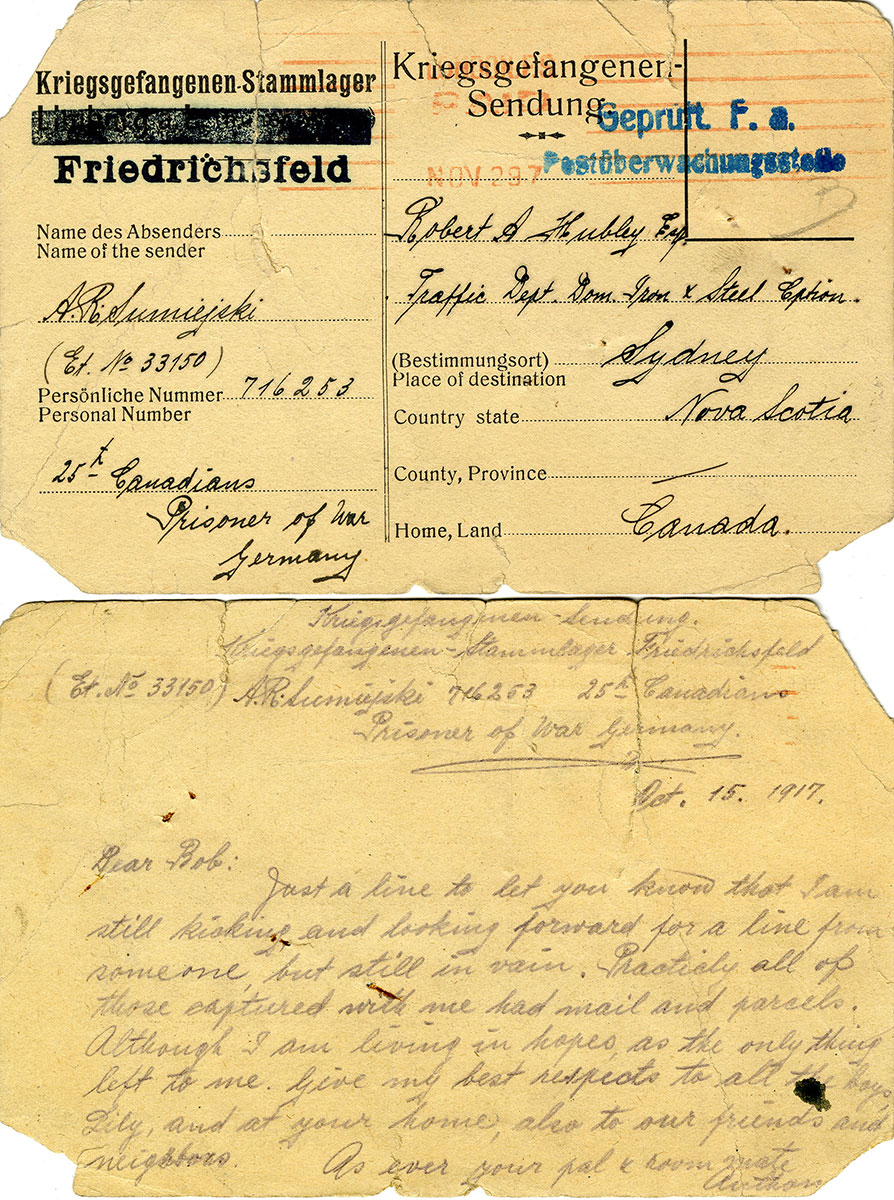 Kriegsgefangenen-Stammlager
Friedrichsfeld
Name des Absenders
Name of the sender
A.R. Sumiejski
(Et. No 33150)
Persönliche Nummer 716253
Personal Number
25th Canadians
Prisoner of War
Germany
Kriegsgefangenen-
Sendung
PAID
NOV 29 7
Geprüft F. a.
Postüberwachungsstelle
Robert A Hubley Esq.
Traffic Dept. Dom. Iron & Steel
(Bestimmungsort) Sydney
Place of destination
Country state Nova Scotia
County, Province —
Home, Land Canada.
Kriegsgefangenen-Sendung.
Kriegsgefangenen-Stammlager Friedrichsfeld
(Et. No 33150) A.R. Sumiejski 716253 25th Canadians
Prisoner of War Germany.
Oct. 15. 1917.
Dear Bob:
Just a line to let you know that I am
still kicking and looking forward for a line from
someone, but still in vain. Practicly all of
those captured with me had mail and parcels.
Although I am living in hopes, as the only thing
left to me. Give my best respects to all the boys,
Lily, and at your home, also to our friends and
neighbors.
As ever your pal & room mate